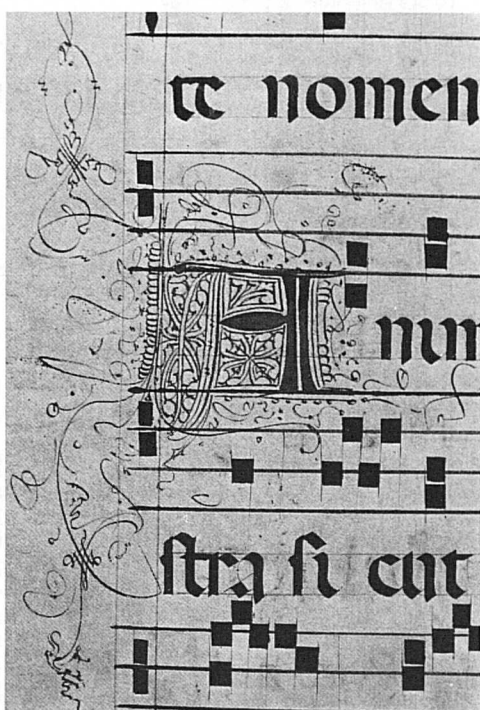 te nomen
A nim
stra si cut